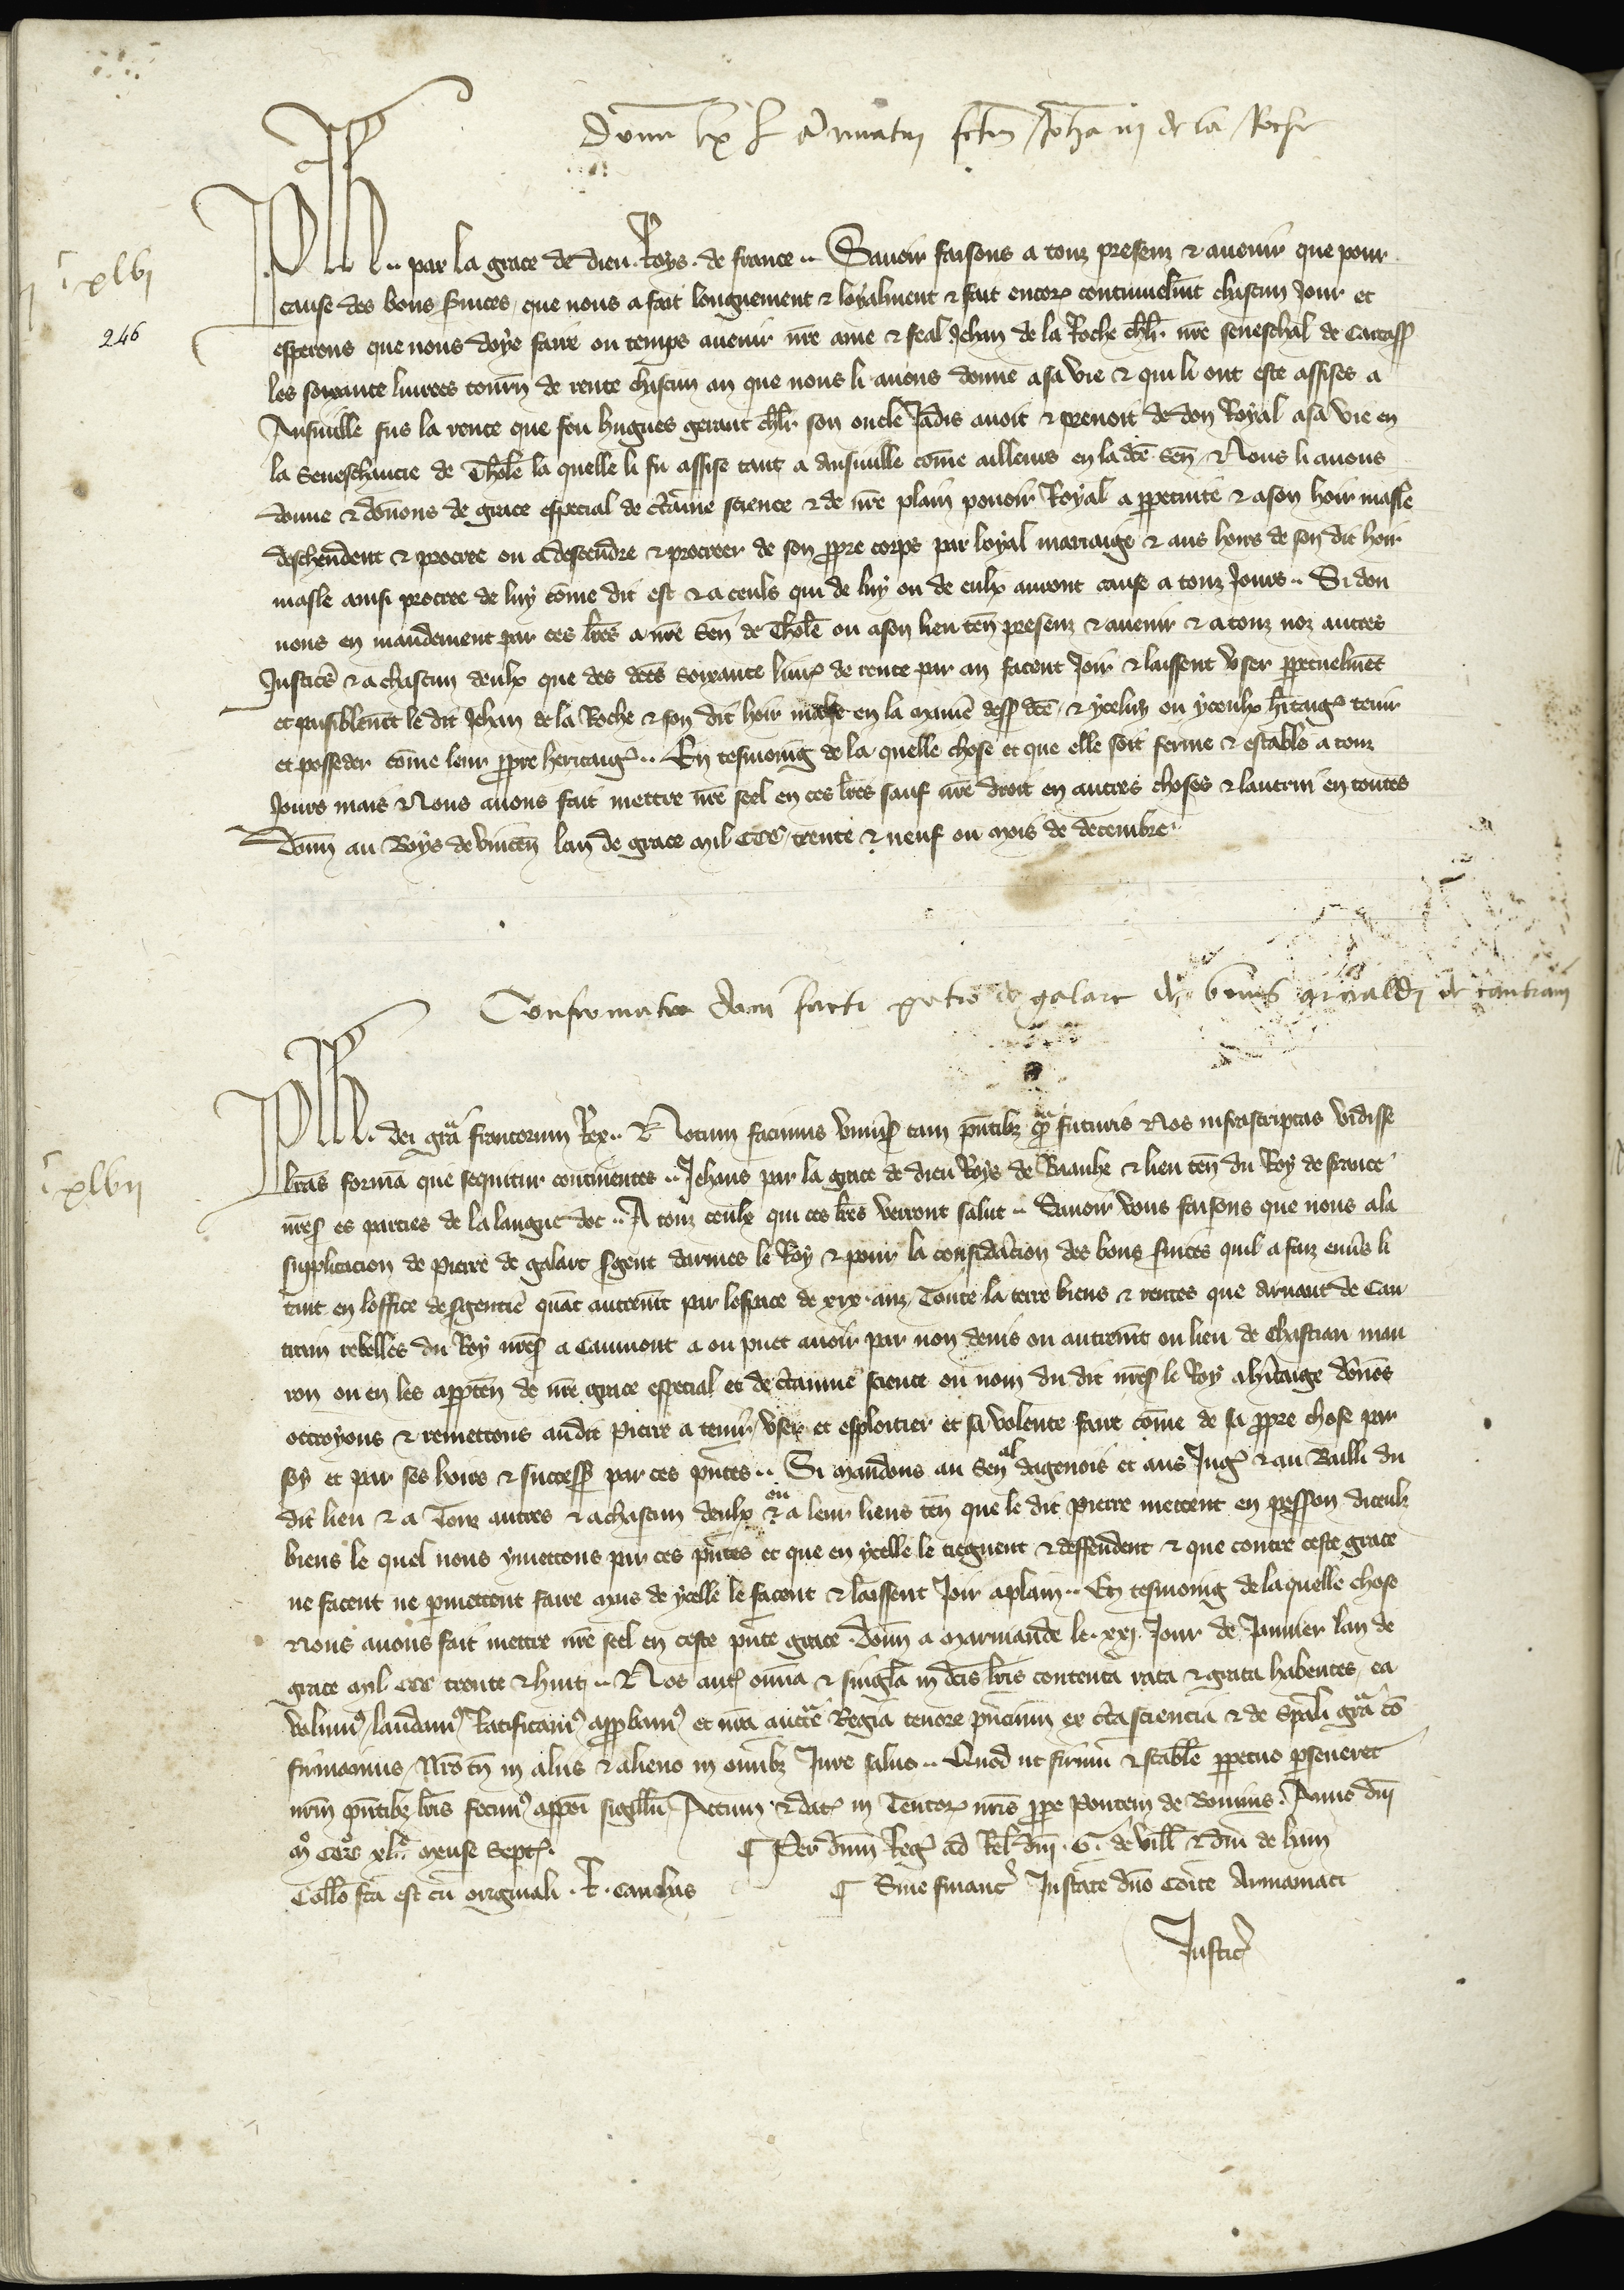 Donum lx l annuatim factum Johanni de la Roche
ij c xlvj
246
Ph .. par la grace de dieu Roys de france .. Savoir faisons a touz presenz & avenir que pour
cause des bons svices que nous a fait longuement & loyalment & fait encor continuelmt chascun Jour et
esperons que nous doye faire ou temps avenir nre ame & feal Jehan de la Roche chlr nre seneschal de Carcass
les soixante livrees tourn de rente chascun an que nous li avons donne a sa vie & qui li ont este assises a
Ansuille sus la rente que feu hugues gerant chlr son oncle Jadis avoit & prenoit de don Royal a sa vie en
la Seneschaucie de Tholse la quelle li fu assise tant a Ansuille come ailleurs en la dce Sen Nous li avons
donne & donons de grace especial de ctaine science & de nre plain povoir Royal a ppetuite & a son hoir masle
deschendent & procree ou a descendre & procreer de son ppre corps par loyal mariaige & aus hoirs de son dit hoir
masle ainsi procree de luy come dit est & a ceuls qui de luy ou de eulx auront cause a touz Jours .. Si don
nous en mandement par ces lres a nre Sen de Tholse ou a son lieu ten presenz & avenir & a touz noz autres
Justics & a chascun deulx que des dces soixante livr de rente par an facent Joir & laissent user ppetuelmet
et paisiblemt le dit Jehan de la Roche & son dit hoir masle en la manie dess dce & yceluy ou yceulx hitaige tenir
et posseder come leur ppre heritaige .. En tesmoing de la quelle chose et que elle soit ferme & estable a touz
Jours mais Nous avons fait mettre nre seel en ces lres sauf nre droit en autres choses & lautrui en toutes
Donn au Boys de vincen lan de grace mil CCC trente & neuf ou mois de decembre
Confirmatio doni facti petro de galart de bonis arnaldi de cautrain
ij c xlvij
Ph dei gra francorum Rex .. Notum facimus univs tam pntibz qm futuris Nos infrascriptas vidisse
lras formam que sequitur continentes .. Jehans par la grace de dieu Roys de Baainhe & lieu ten du Roy de france
nres es parties de la langue doc .. A touz ceulx qui ces lres verront salut .. Savoir vous faisons que nous a la
supplicacion de Pierre de galart sgent darmes le Roy & pour la consideracion des bons svices quil a faiz envs li
tant en loffice de sgentie quat autremt par lespace de xix anz Toute la terre biens & rentes que Arnaut de Cau
train rebelles du Roy nres a Caumont a ou puet avoir par non devis ou autremt ou lieu de Chastiau mau
ron ou en les apptens de nre grace especial et de ctaine science ou nom du dit nres le Roy a hitaige donons
ottroyons & remettons au dit Pierre a tenir user et esploitier et sa volente faire come de sa ppre chose par
soy et par ses hoirs & success par ces pntes .. Si mandons au Senal dagenois et aus Juges & au Bailli du
dit lieu & a Touz autres & a chascun deulx ou a leur lieus ten que le dit pierre mettent en possession diceulz
biens le quel nous ymettons par ces pntes et que en ycelle le tiegnent & deffendent & que contre ceste grace
ne facent ne pmettent faire mais de ycelle le facent & laissent Joir a plain .. En tesmoing de la quelle chose
Nous avons fait mettre nre seel en ceste pnte grace Donn a Marmande le xxj Jour de Janvier lan de
grace mil CCC trente & huit .. Nos aute omnia & singla in dcis lris contenta rata & grata habentes ea
volum laudam Ratificam appbam et nra auctte Regia tenore pncium ex cta sciencia & de spali gra co
firmamus Nro tn in aliis & alieno in omibz Jure salvo .. Quod ut firmu & stabile ppetuo pseveret
nrm pntibz lris fecim apponi sigillu Actum & dat in Tentor nris ppe Pontem de Bouvines Anno dni
m ccc xl mense Sept
Per dnm Reg ad Rel dni G de vill & dni de hum
Collo fca est cu originali R Caudus
Sine financ Instate dno Comite Armaniaci
Justic